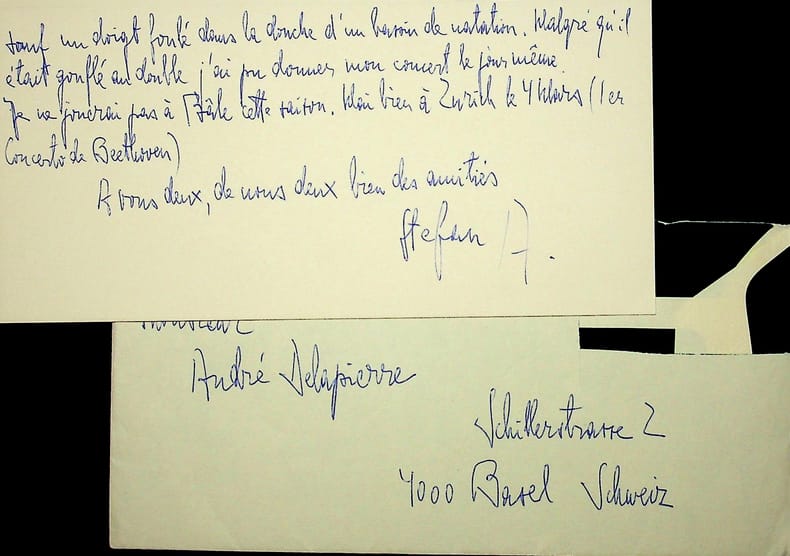 sauf un doigt foulé dans la douche d'un bassin de natation. Malgré qu'il
était gonflé au double j'ai pu donner mon concert le jour même.
Je ne jouerai pas à Bâle cette saison. Mais bien à Zurich le 4 Mars (1er
Concerto de Beethoven)
A vous deux, de nous deux bien des amitiés
Stefan A.
Monsieur
André Delapierre
Schillerstrasse 2
4000 Basel Schweiz